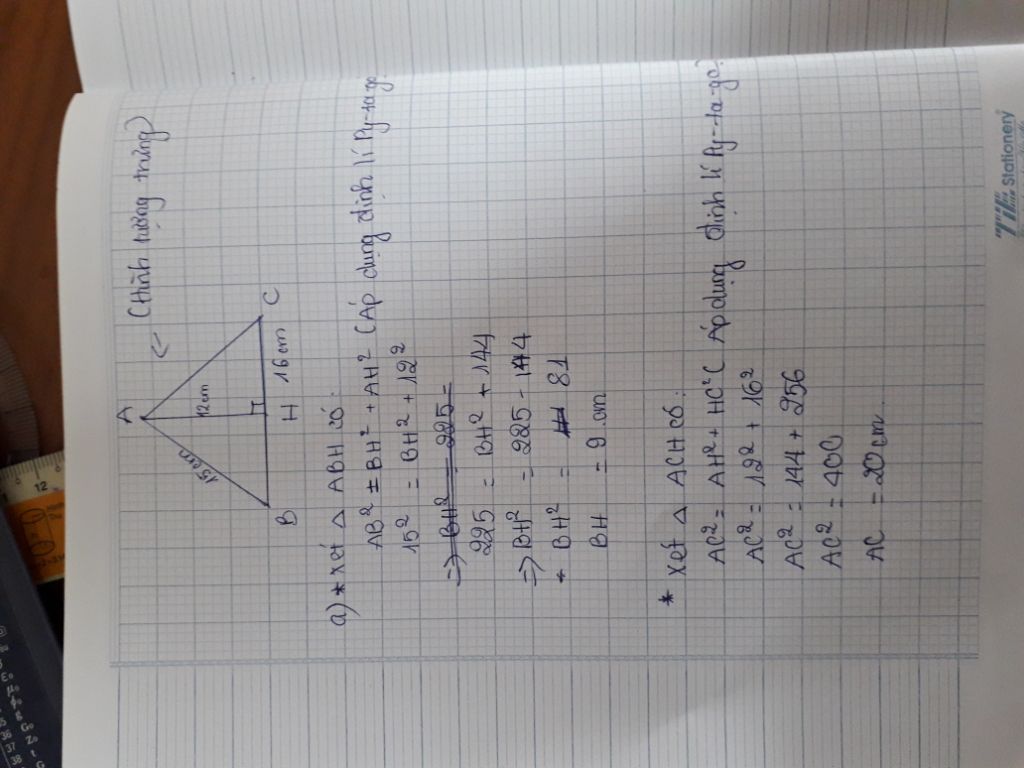 (Hình tượng trưng)
A
15 cm
12cm
B
H
16 cm
C
a) * Xét △ ABH có:
AB² = BH² + AH² (Áp dụng định lí Py-ta-go)
15² = BH² + 12²
=) BH² = 225 =
225 = BH² + 144
=) BH² = 225 - 144
BH² = 81
BH = 9 cm
* Xét △ ACH có:
AC² = AH² + HC² ( Áp dụng định lí Py-ta-go)
AC² = 12² + 16²
AC² = 144 + 256
AC² = 400
AC = 20 cm
TiTi Stationery
12
36
37
38